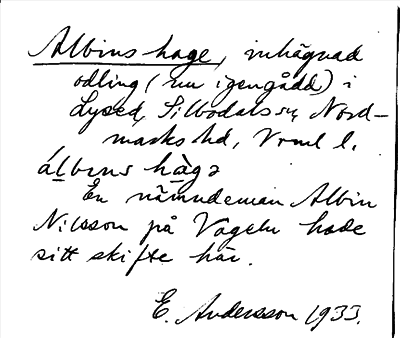 Albins hage, inhägnad
odling (nu igengådd) i
Lysed, Silbodals sn, Nord-
marks hd, Vrml l.
álbıns hàgə
En nämndeman Albin
Nilsson på Vageln hade
sitt skifte här.
E. Andersson 1933.